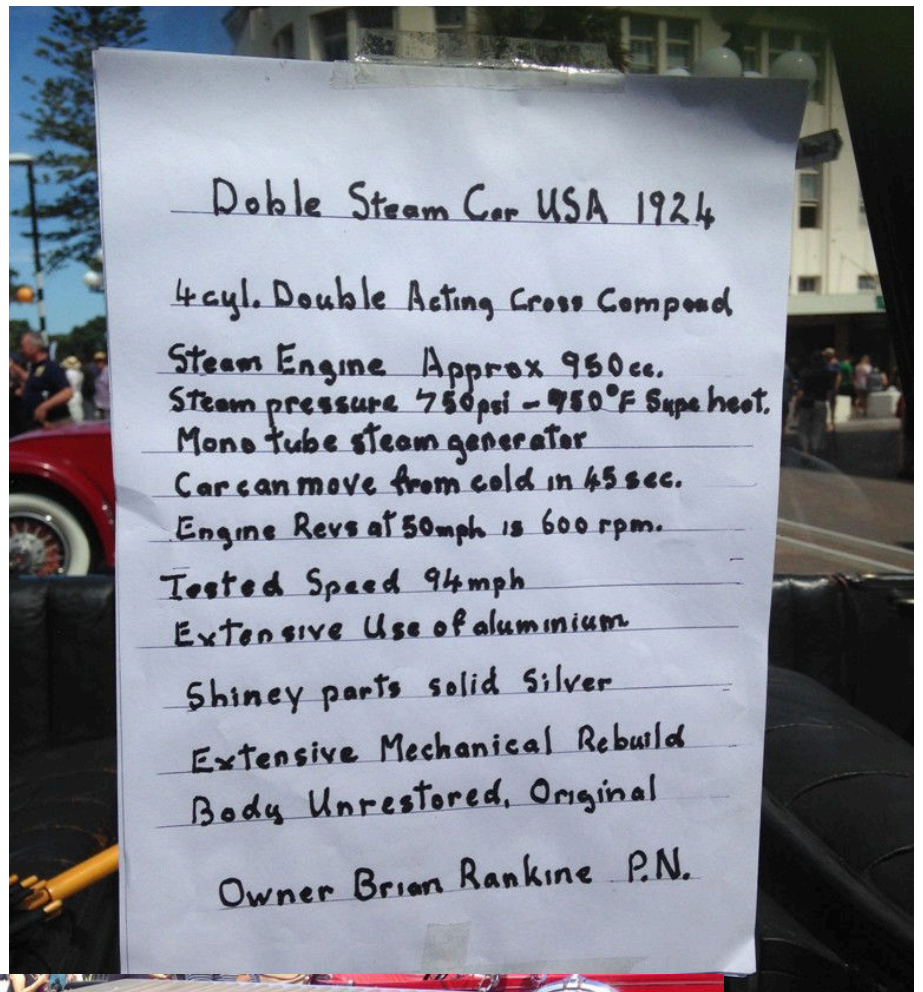 Doble Steam Car USA 1924
4cyl. Double Acting Cross Compoad
Steam Engine Approx 950cc.
Steam pressure 750psi - 950°F Supe heat.
Mono tube steam generator
Car can move from cold in 45 sec.
Engine Revs at 50mph is 600 rpm.
Tested Speed 94mph
Extensive Use of aluminium
Shiney parts solid Silver
Extensive Mechanical Rebuild
Body Unrestored, Original
Owner Brian Rankine P.N.